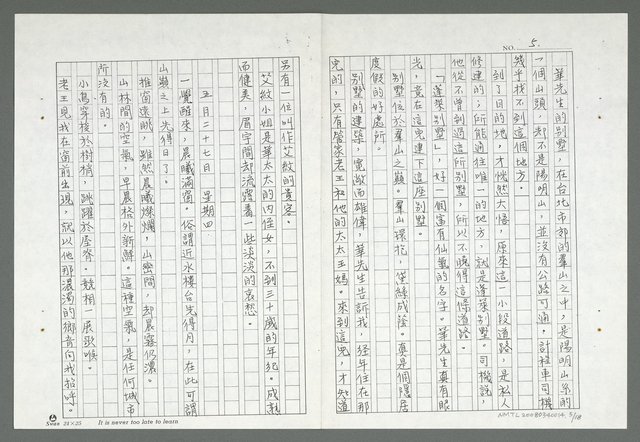 NO. 5.
華先生的別墅，在台北市郊的羣山之中，是陽明山系的
一個山頭，却不是陽明山，並沒有公路可通，計程車司機
幾乎找不到這個地方。
到了目的地，才恍然大悟，原來這一小段道路，是私人
修建的；所能通往唯一的地方，就是蓬萊別墅。司機說，
他從不曾到過這所別墅，所以不曉得這條道路。
「蓬萊別墅」，好一個富有仙氣的名字。華先生真有眼
光，竟在這兒建下這座別墅。
別墅位於羣山之巔。羣山環抱，黛綠成蔭。真是個隱居
度假的好處所。
別墅的建築，寬敞而雄偉，華先生告訴我，經年住在那
兒的，只有管家老王和他的太太王媽。來到這兒，才知道
另有一位叫作艾紋的貴客。
艾紋小姐是華太太的內侄女，不到三十歲的年紀。成熟
而健美，眉宇間却流露着一些淡淡的哀愁。
五月二十七日　星期四
一覺醒來，晨曦滿窗。俗謂近水樓台先得月，在此可謂
山巔之上先得日了。
推窗遠眺，雖然晨曦燦爛，山巒間，却晨霧仍濃。
山林間的空氣，早晨格外新鮮。這種空氣，是任何城市
所沒有的。
小鳥穿梭於樹梢，跳躍於屋脊。競相一展歌喉。
老王見我在窗前出現，就以他那濃濁的鄉音向我招呼。
Swan 24×25 It is never too late to learn
NMTL20080340014 5/18